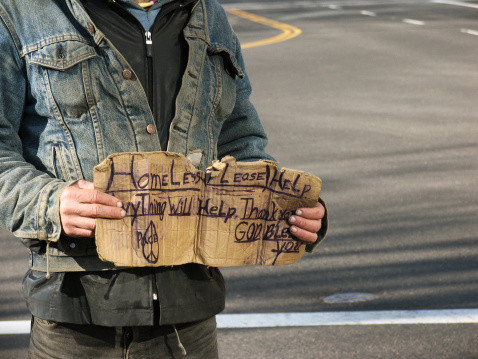 HomeLess PLease HeLp
AnyThing WiLL HeLp. Thank you
GOD BLess
you
PEACE